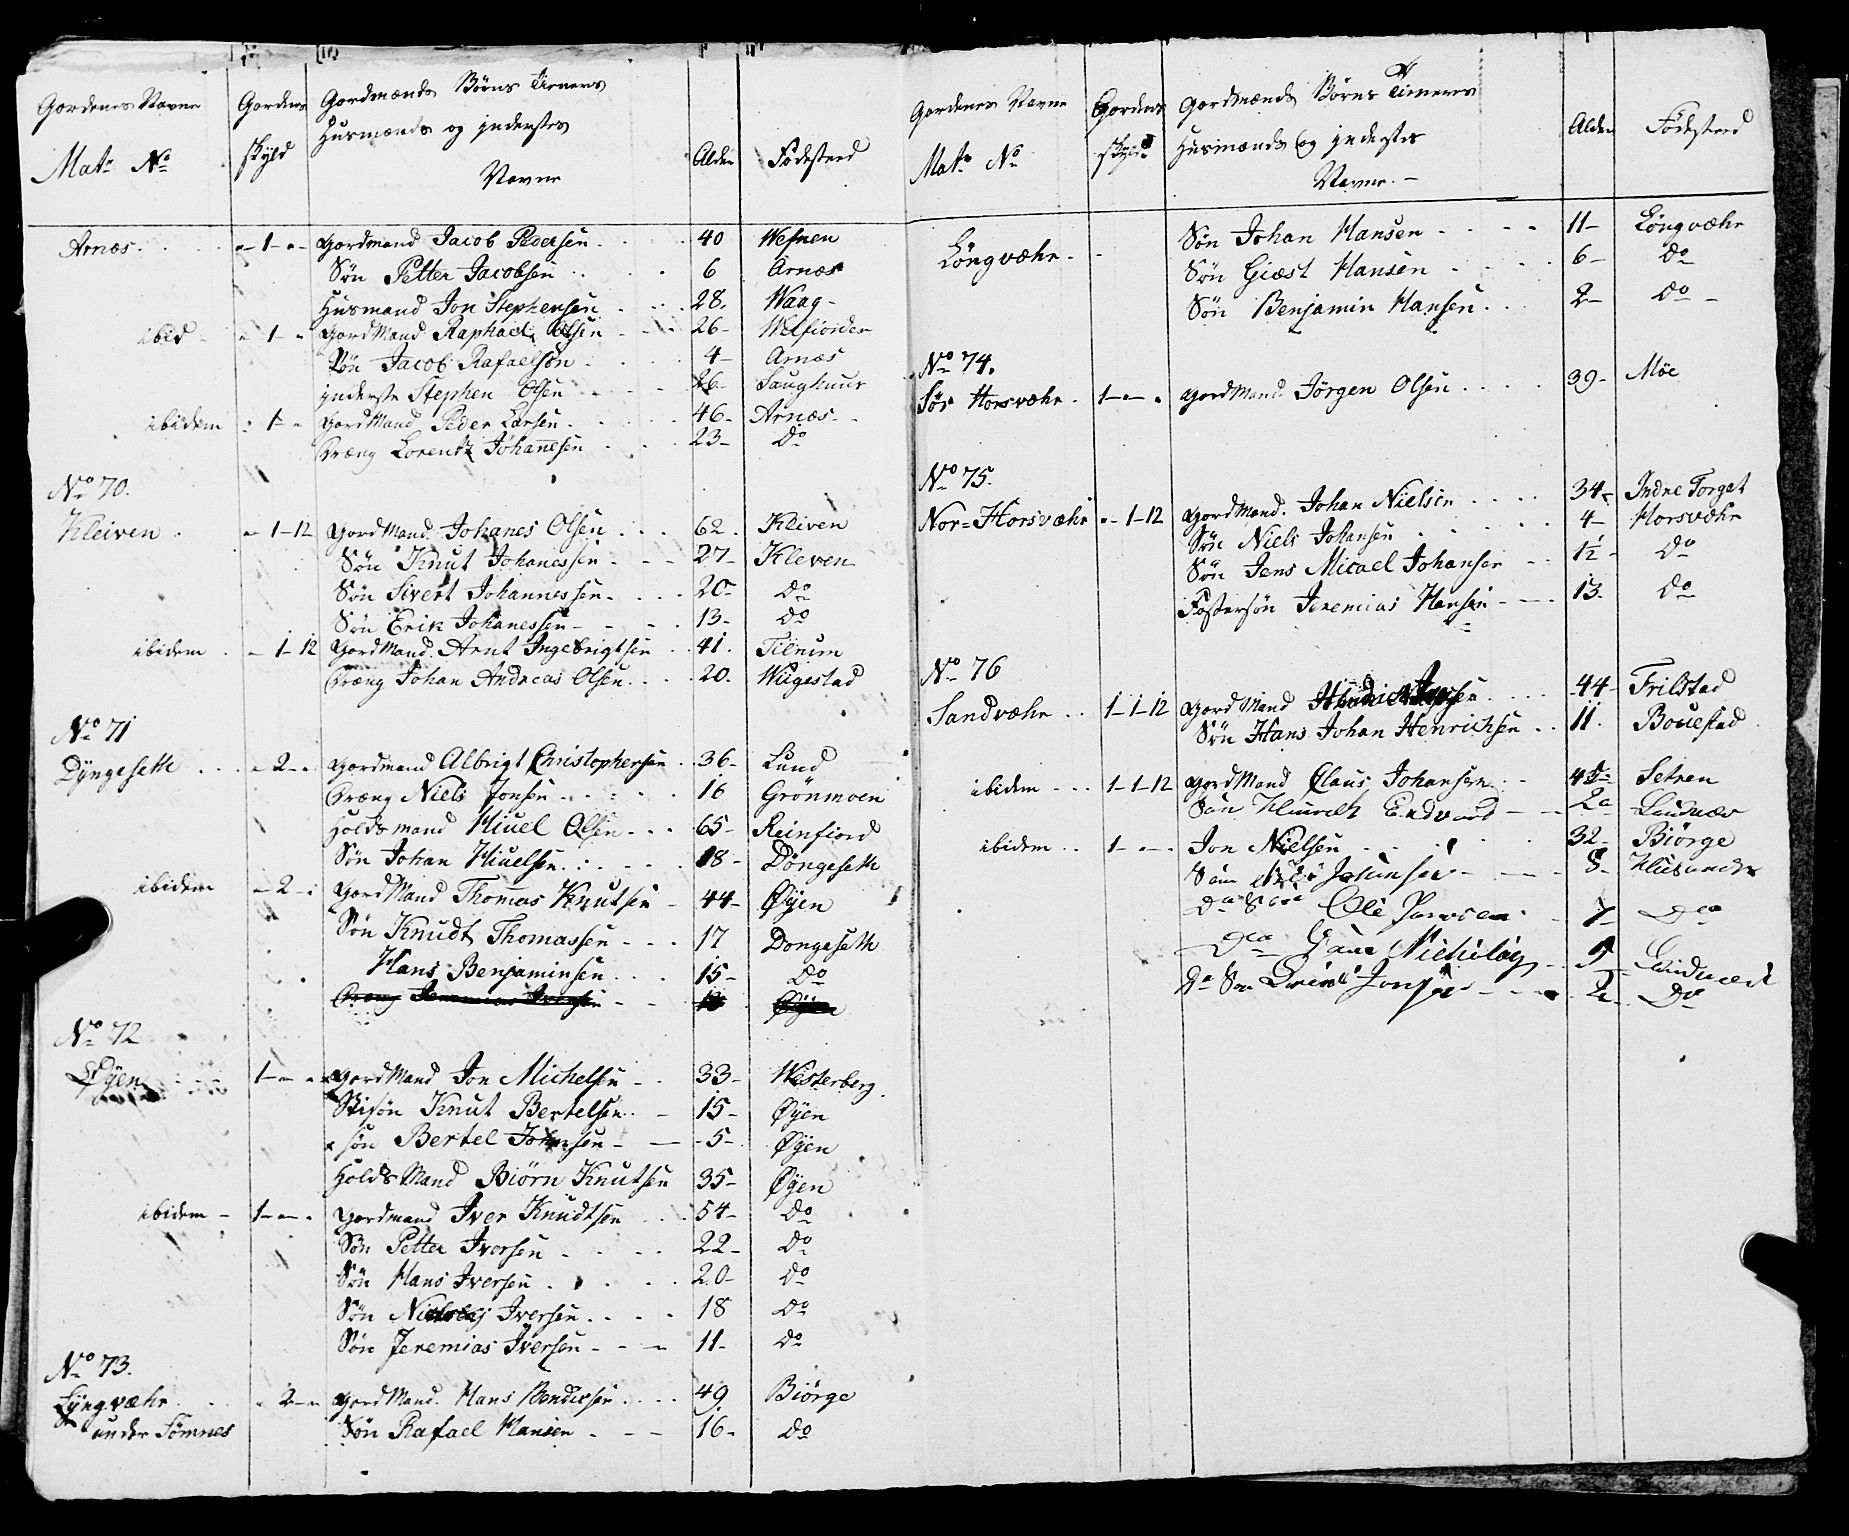 Gordenes Navne Gordens Gordmænds Børns Tieneres
Husmænds og inderstes
Mat: No skyld Navne Alder Fødestæd
Arnæs - 1 - Gordmand Jacob Pedersen 40 Wefsen
Søn Petter Jacobsen 6 Arnæs
Husmand Jon Stephensen 28 Waag
ibid - 1 - Gord Mand Raphael Olsen 26 Welfiorden
Søn Jacob Rafaelsøn 4 Arnæs
inderste Stephen Olsen 26 Saughuus
ibidem 1 - Gord Mand Peder Larsen 46 Arnæs
Dræng Lorentz Johannesen 23 Do
No 70.
Kleiven - 1-12 Gord Mand Johanes Olsen 62 Kliven
Søn Knut Johanessen 27 Kleven
Søn Sivert Johannessen 20 Do
Søn Erik Johanessen 13 Do
ibidem - 1-12 Gord Mand Arnt Ingebrigtsen 41 Tilrum
Dræng Johan Andreas Olsen 20 Wiigestad
No 71
Dÿngeseth - 2 - Gordmand Albrigt Christophersen 36 Lund
Dræng Niels Jonsen 16 Grönmoen
Holdsmand Hiuel Olsen 65 Reinfiord
Søn Johan Hiuelsen 18 Döngeseth
ibidem - 2 - Gord Mand Thommas Knutsen 44 Øÿen
Søn Knudt Thomassen 17 Dongeseth
Hans Benjaminsen 15 Do
Dræng Jeremias Iversen Øÿen
No 72
Øÿen 1 - - Gord Mand Jon Michelsen 33 Westerberg
Stifsøn Knut Bertelsen 15 Øÿen
søn Bertel Johnsen 5 Øÿen
Holds Mand Biörn Knutsen 35 Øÿen
ibidem 1 - - Gordmand Iver Knudtsen 54 Do
Søn Petter Iversen 22 Do
Søn Hans Iversen 20 Do
Søn Nicolaj Iversen 18 Do
Søn Jeremias Iversen 11 Do
No 73.
Lÿngvæhr - 2 - Gord Mand Hans Bendixsen 49 Biörge
under Sömnes Søn Rafael Hansen 16 Do
Gordenes Navne Gordens Gordmænds Børns Tieneres
Husmænds og inderstes
Mat: No skyld Navne Alder Fødestæd
Löngvæhr Søn Johan Hansen 11 Löngvæhr
Søn Giæst Hansen 6 Do
Søn Benjamin Hansen 2 Do
No 74.
Sør Horsvæhr 1 - - Gord Mand Jörgen Olsen 39 Möe
No 75.
Nor-Horsvæhr - 1-12 Gord Mand Johan Nielsen 34 Indre Torget
Søn Niels Johansen 4 Horsvæhr
Søn Jens Micael Johansen 1½ Do
Fostersøn Jeremias Hansen 13 Do
No 76
Sandvæhr 1-1-12 Gord Mand 44 Frilstad
Søn Hans Johan Henrichsen 11 Bouestad
ibidem 1-1-12 Gord Mand Claus Johansen Setren
Edvard
ibidem 1 - - Jon Nielsen 32 Biörge
8
Do Ole 7 Do
Nicholay
Do Søn 2 Do